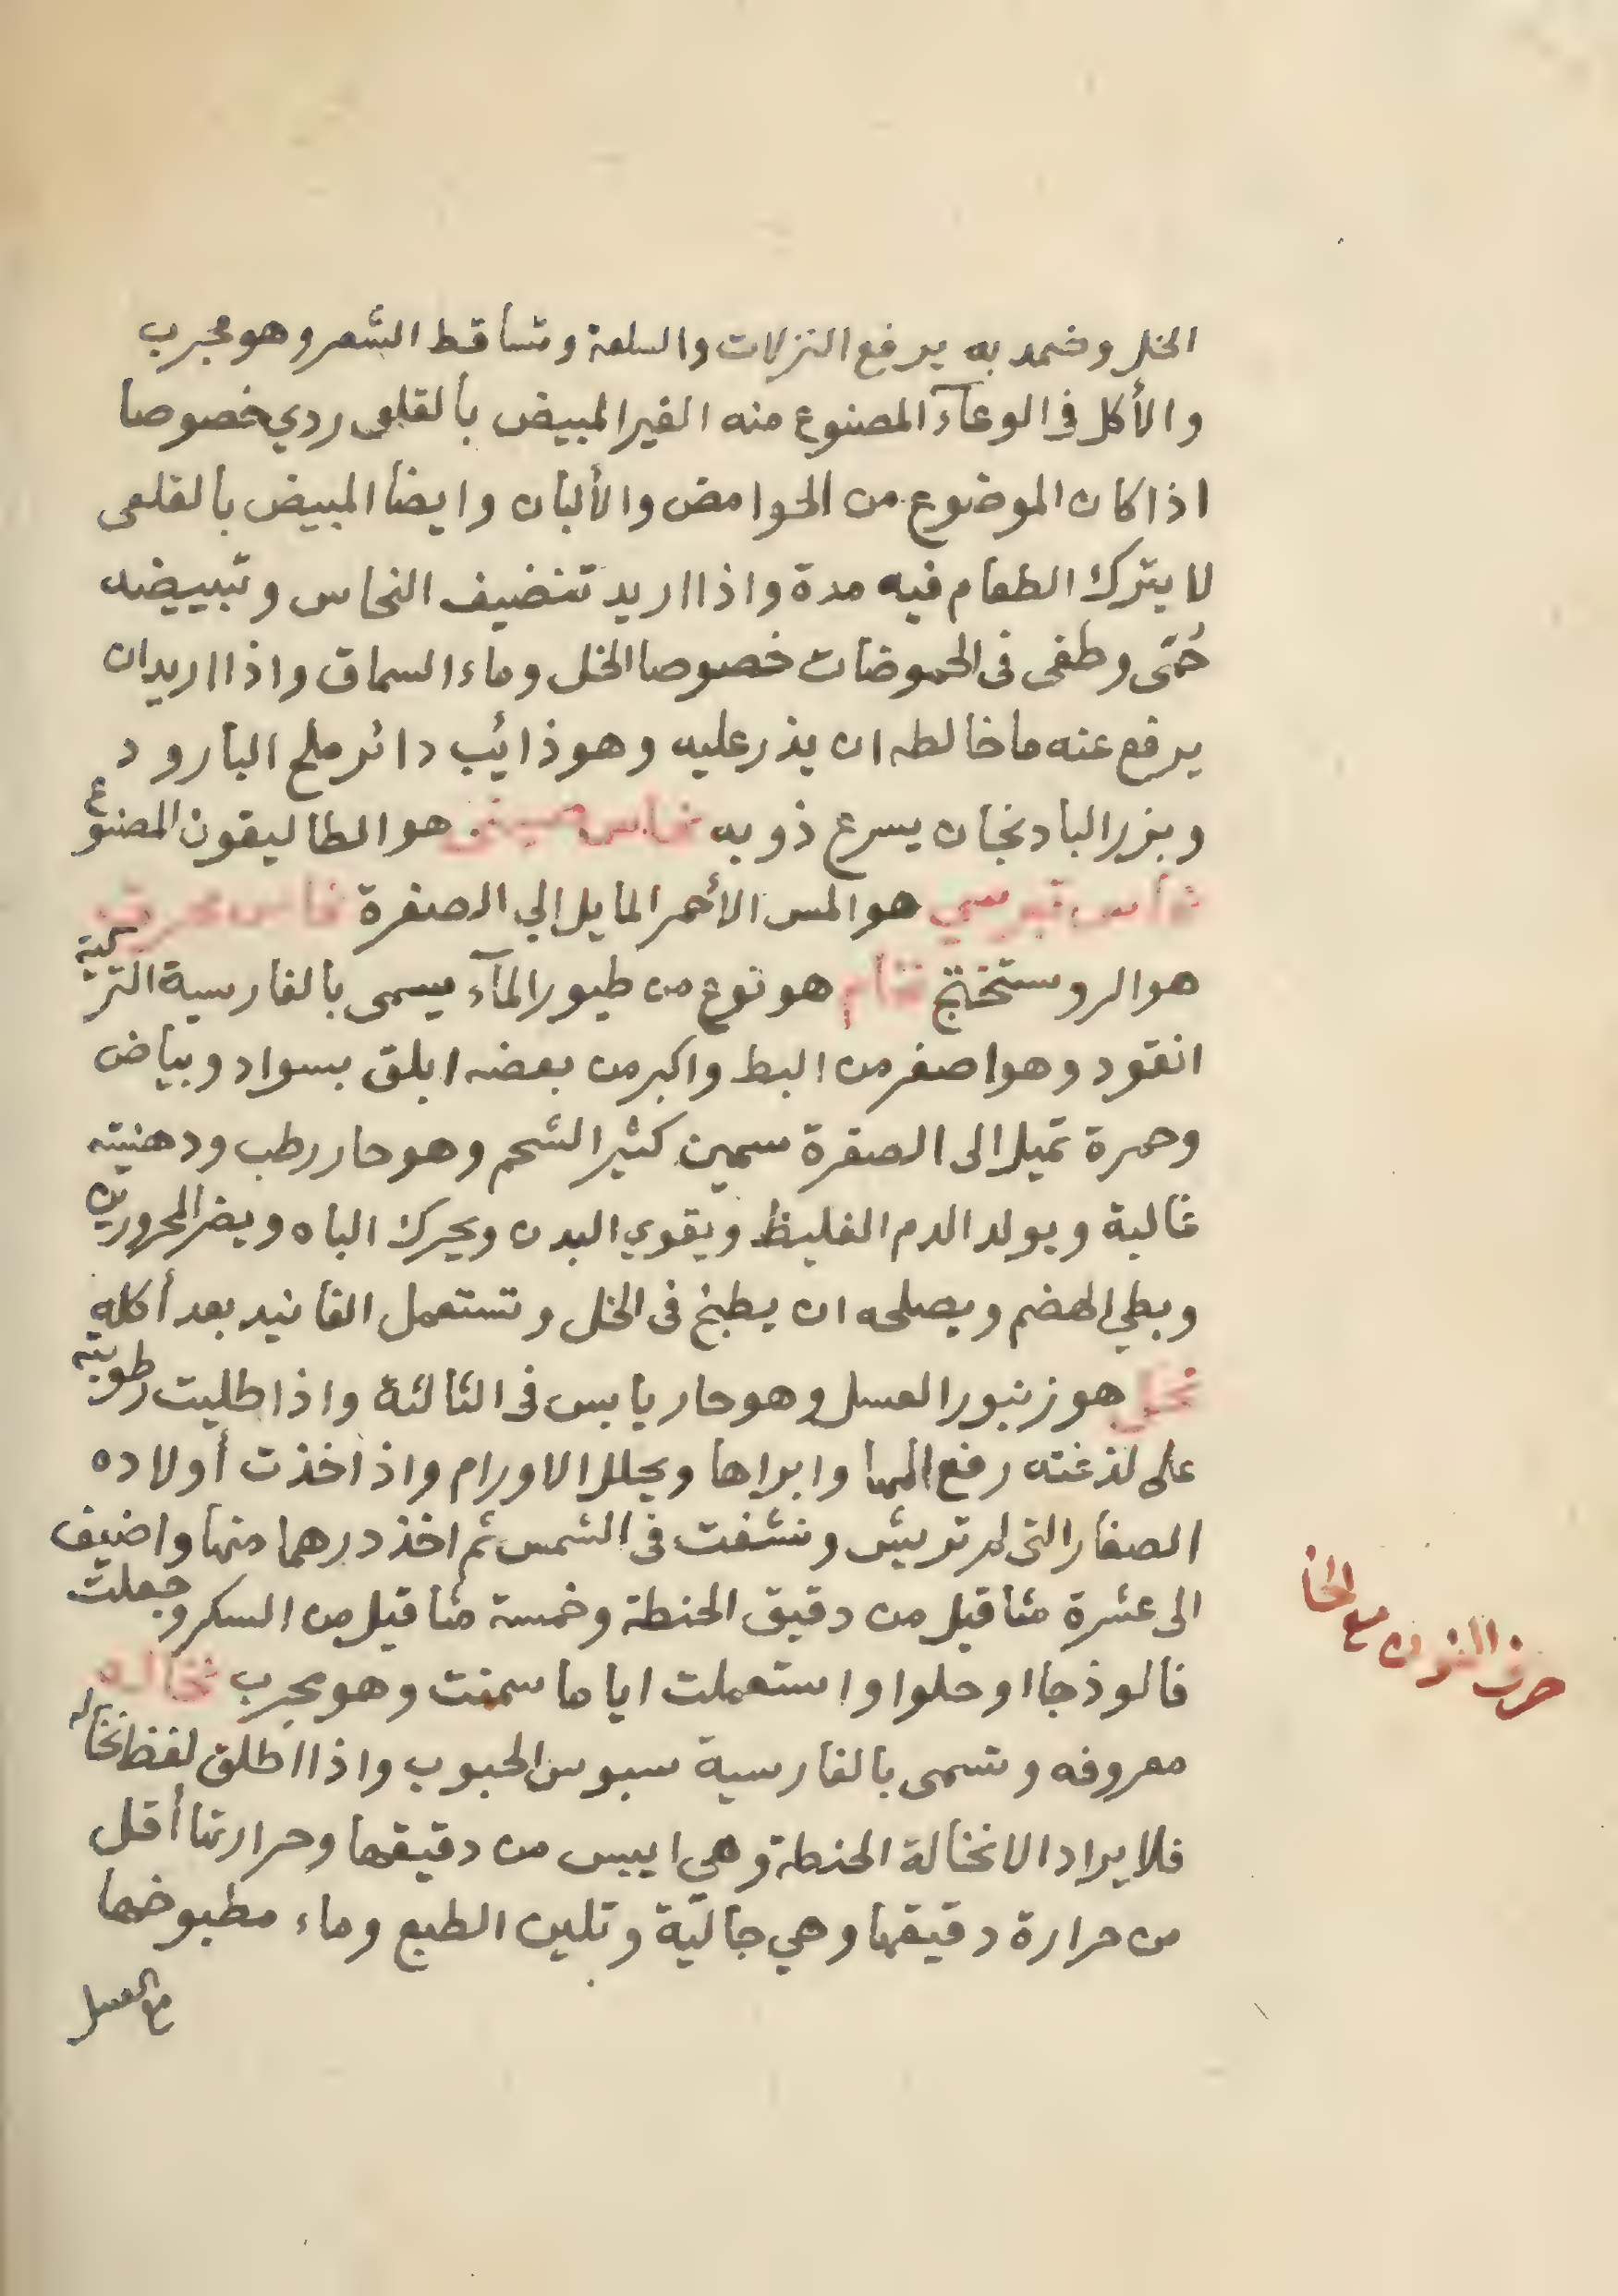 الخل وضمد به يرفع النزلات والسلعة وتساقط الشعر وهو مجرب
والأكل في الوعآء المصنوع منه الغير المبيض بالقلعى ردي خصوصا
اذا كان الموضوع من الحوامض والألبان وايضا المبيض بالقلعى
لا يترك الطعام فيه مدة واذا اريد تنضيف النحاس وتبييضه
حُمّى وطفى فى الحموضات خصوصا الخل وماء السماق واذا اريد ان
يرفع عنه ما خالطه ان يذر عليه وهو ذائب دائر ملح البارود
وبزر البادنجان يسرع ذوبه نحاس صينى هو الطاليقون المصنوع
نحاس قبرسي هو المس الأحمر المايل إلي الصفرة نحاس محرق
هو الروستختج نحام هو نوع من طيور المآء يسمى بالفارسية التركية
انقود وهو اصغر من البط واكبر من بعضه ابلق بسواد وبياض
وحمرة تميل الى الصفرة سمين كثير الشحم وهو حار رطب ودهنيته
غالبة ويولد الدم الغليظ ويقوي البدن ويحرك الباه ويضر المحرورين
وبطي الهضم ويصلحه ان يطبخ فى الخل وتستعمل الفانيد بعد أكله
نحل هو زنبور العسل وهو حار يابس فى الثالثة واذا طليت رطوبته
على لذغته رفع المها وابراها ويحلل الاورام واذا اخذت أولاده
الصغار التى لم تريش ونشفت فى الشمس ثم اخذ درهما منها واضيف
الى عشرة مثاقيل من دقيق الحنطة وخمسة مثاقيل من السكر وجعلت
فالوذجا او حلوا واستعملت اياما سمنت وهو مجرب نخاله
معروفه وتسمى بالفارسية سبوس الحبوب واذا اطلق لفظ نخاله
فلا يراد الا نخالة الحنطة وهي ايبس من دقيقها وحرارتها أقل
من حرارة دقيقها وهي جاليّة وتلين الطبع وماء مطبوخها
مع العسل
حرف النون مع الخا